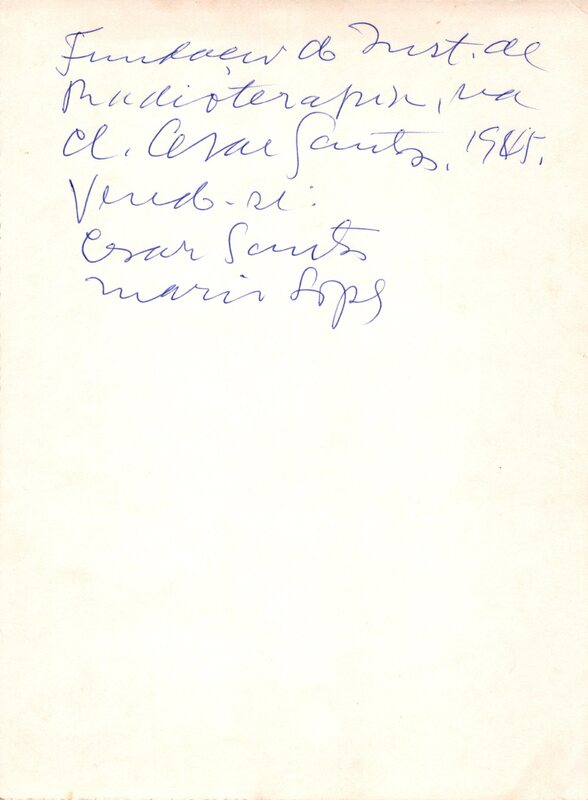 Fundaçao do Inst. de
Radioterapia, na
cl. Cesar Santos. 1945.
Vendo-se:
Cesar Santos
Mario Lopes